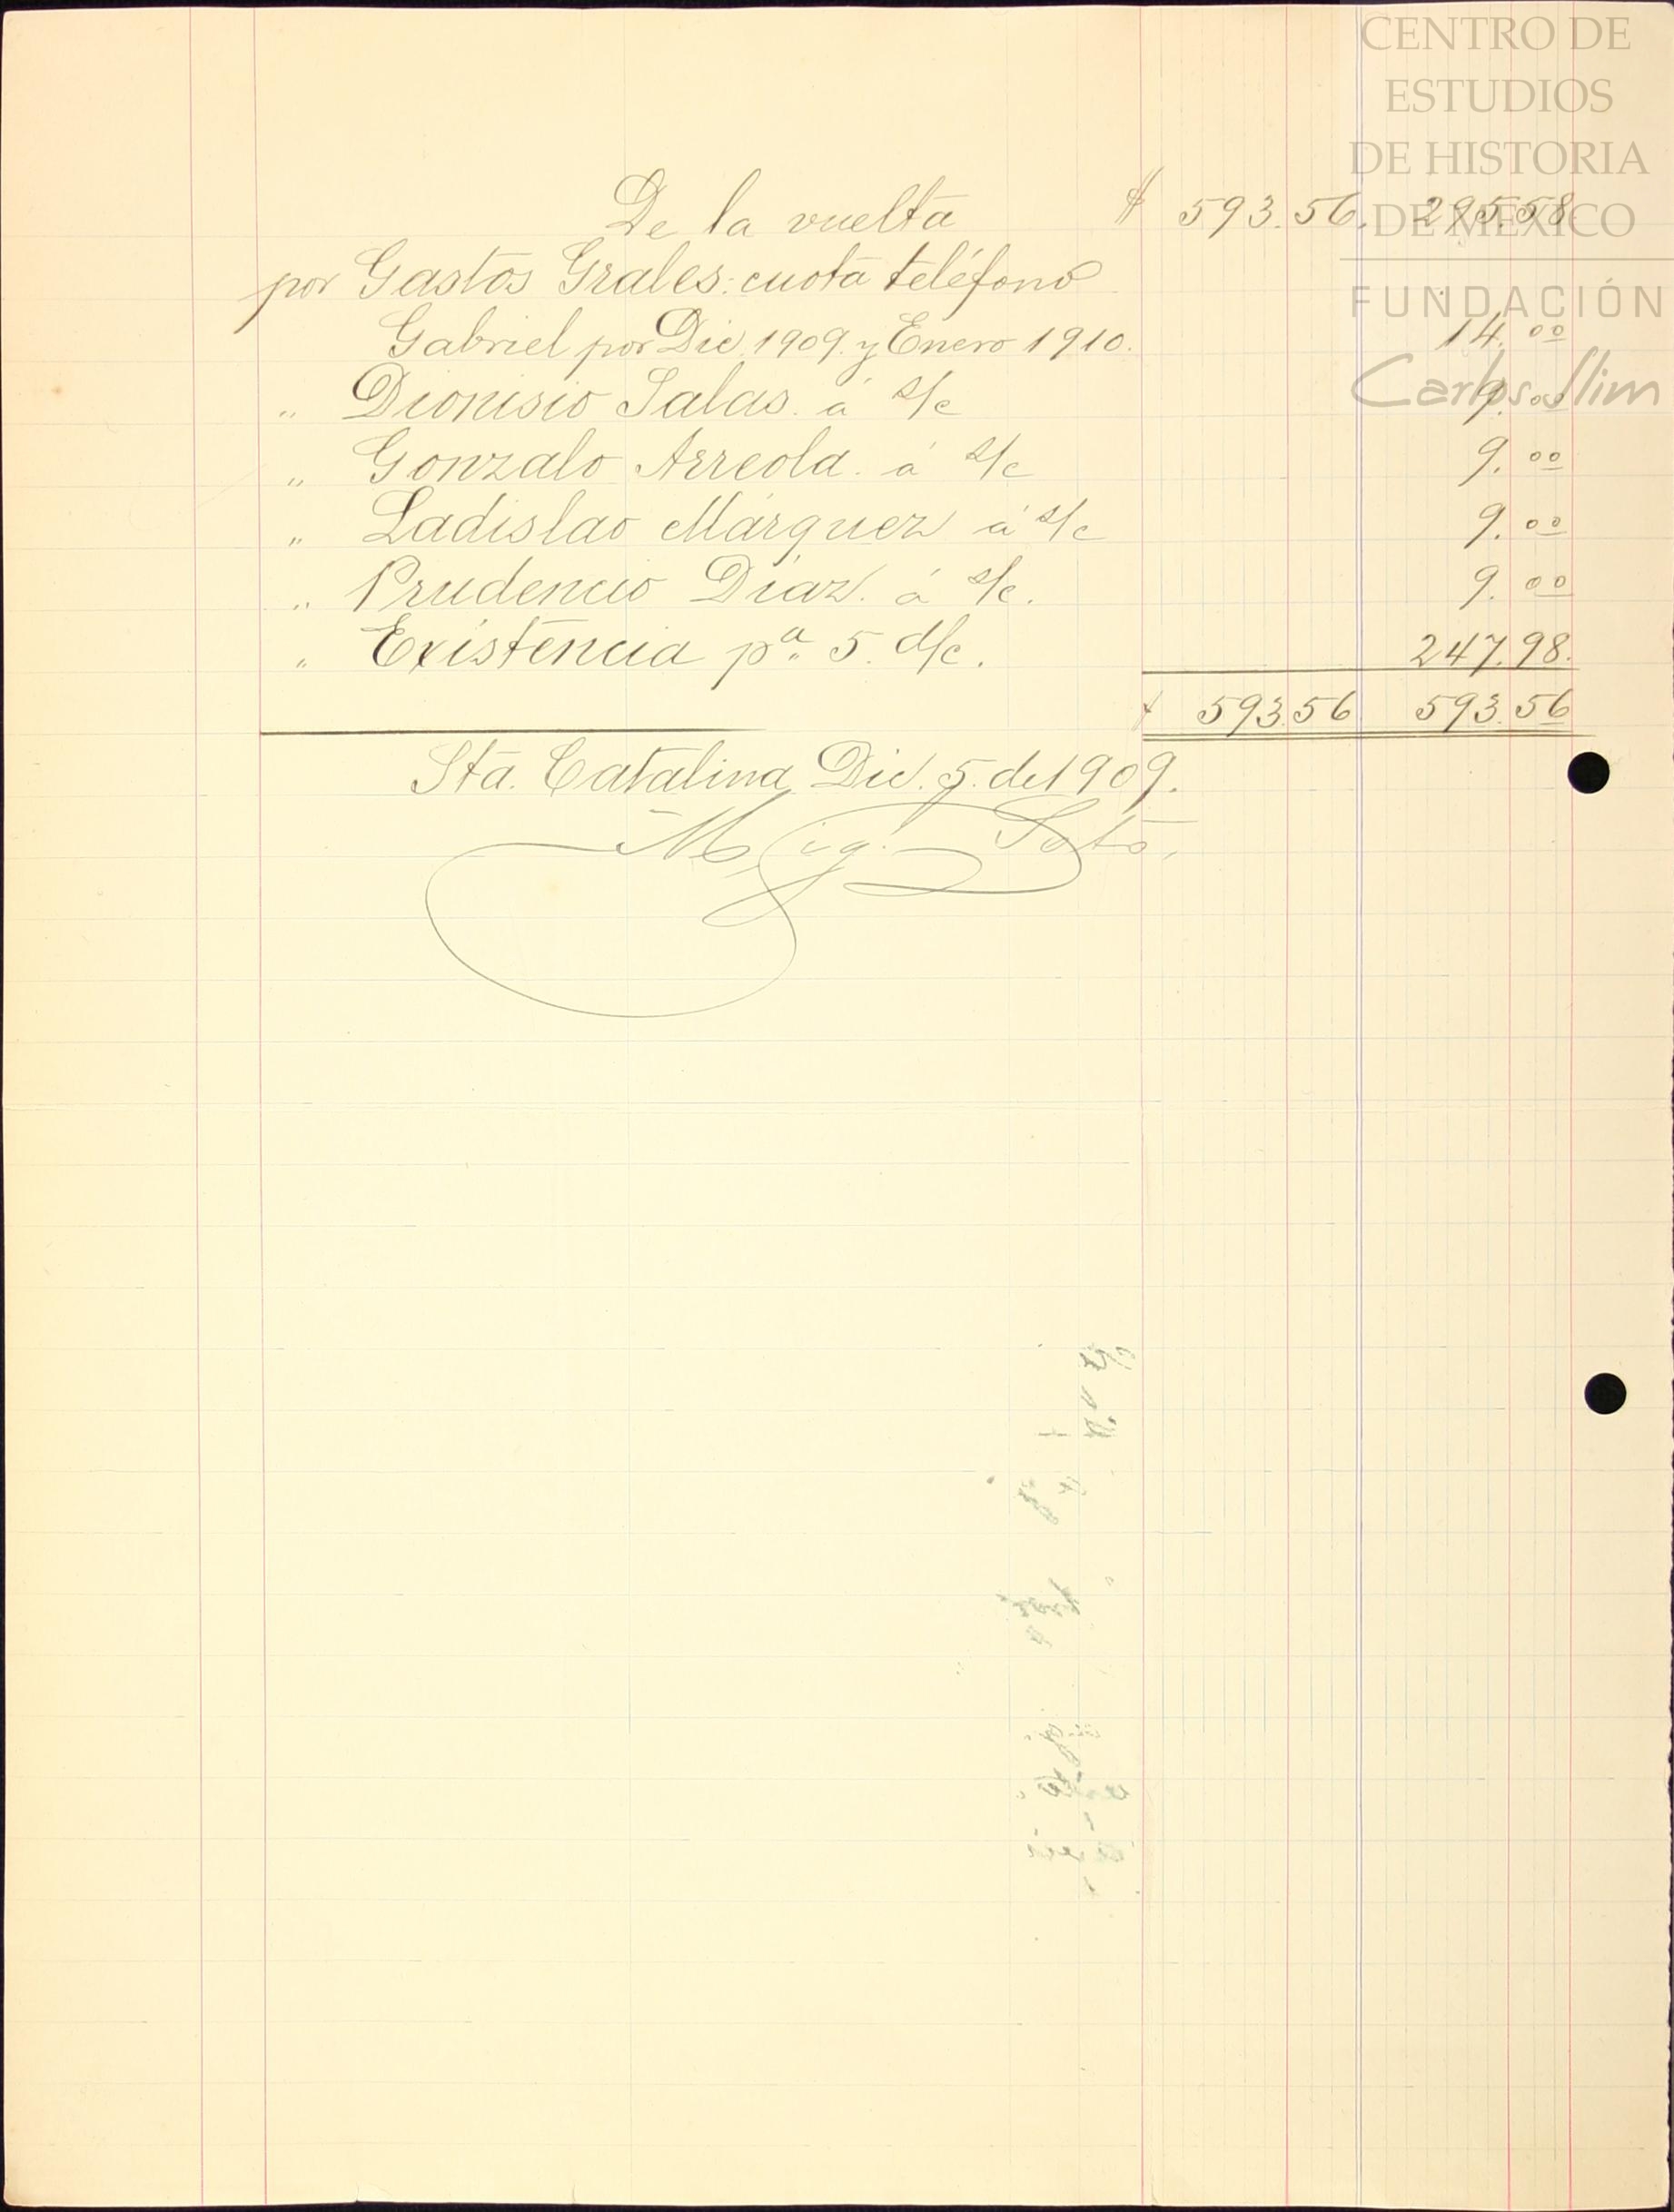 CENTRO DE
ESTUDIOS
DE HISTORIA
DE MÉXICO
FUNDACIÓN
Carlos Slim
De la vuelta $ 593.56. 295.58
por Gastos Grales. cuota teléfono
Gabriel por Dic. 1909. y Enero 1910. 14.00
" Dionisio Salas. á s/c 9.00
" Gonzalo Arreola. á s/c 9.00
" Ladislao Márquez á s/c 9.00
" Prudencio Díaz. á s/c. 9.00
" Existencia pa. 5. d/c. 247.98.
$ 593.56 593.56
Sta. Catalina Dic. 5. de 1909.
Mig. Soto.